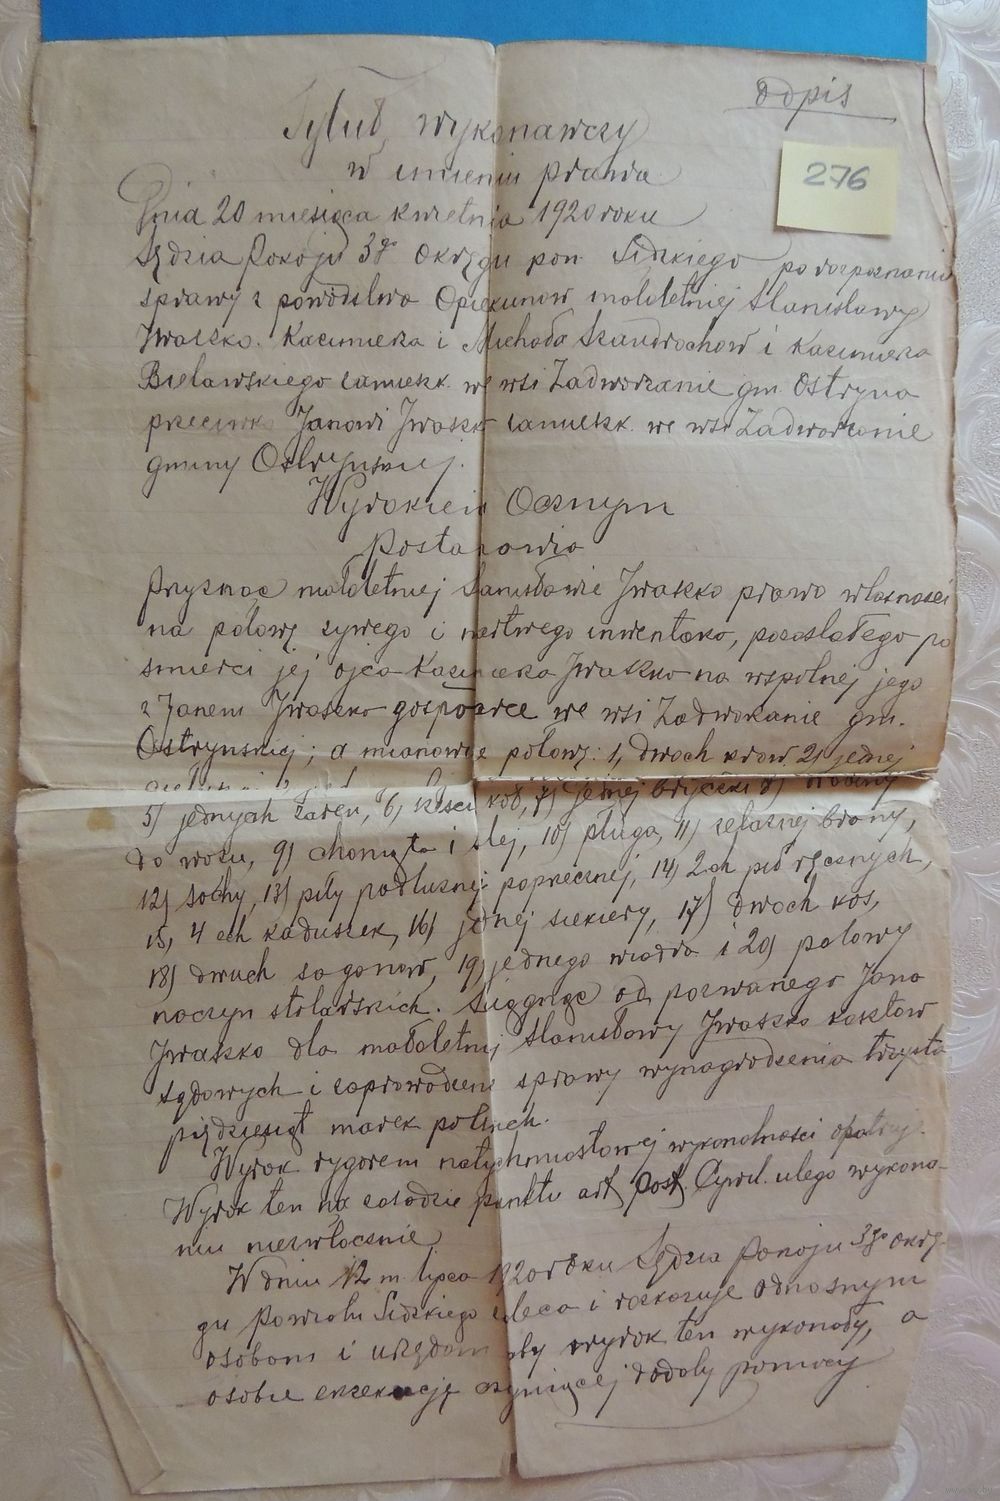 odpis
Tytuł wykonawczy
w imieniu prawa
276
Dnia 20 miesiąca kwietnia 1920 roku
Sędzia Pokoju 3go okręgu pow. Lidzkiego po rozpoznaniu
sprawy z powództwa Opiekunow małoletniej Stanisławy
Iwaszko. Kazimierza i Michała Szandrochow i Kazimierza
Bielawskiego zamieszk. we wsi Zadworzanie gm. Ostryna
przeciwko Janowi Iwaszko zamieszk. we wsi Zadworzanie
gminy Ostrynskiej.
Wyrokiem Ocznym
Postanowia
Przyznac małoletniej Stanisławie Iwaszko prawo własności
na połowę zywego i martwego inwentaza, pozostałego po
smierci jej ojca Kazimierza Iwaszko na wspólnej jego
z Janem Iwaszko gospodarce we wsi Zadworzanie gm.
Ostrynskiej; a mianowice połowę: 1, dwoch krow 2) jednej
5) jednych żaren, 6) kół, 7) jednej bryczki 8) drabiny
do wozu, 9) chomąta i slej, 10) pługa, 11) zelaznej brony,
12) sochy, 13) piły podłuznej poprzecznej, 14) 2ch pił ręcznych,
15, 4 ech kaduszek, 16) jednej siekiery, 17) dwoch kos,
18) dwuch saganow, 19) jednego wiadra i 20) połowy
naczyn stolarskich. Sciągnąc od pozwanego Jana
Iwaszko dla małoletniej Stanisławy Iwaszko kosztow
sądowych i zaprowadzenie sprawy wynagrodzenia trzysta
pięcdziesiąt marek polskich.
Wyrok rygorem natychmiastowej wykonalnosci opatrzyc.
Wyrok ten na zasadzie punktu art Post. Cywil. ulega wykona-
niu niezwłocznie
W dniu 12 m. lipca 1920 roku Sędzia Pokoju 3go okrę-
gu Powiatu Lidzkiego zaleca i rozkazuje odnosnym
osobom i urzędom aby wyrok ten wykonały, a
osobie egzekucję czyniącej dodały pomocy